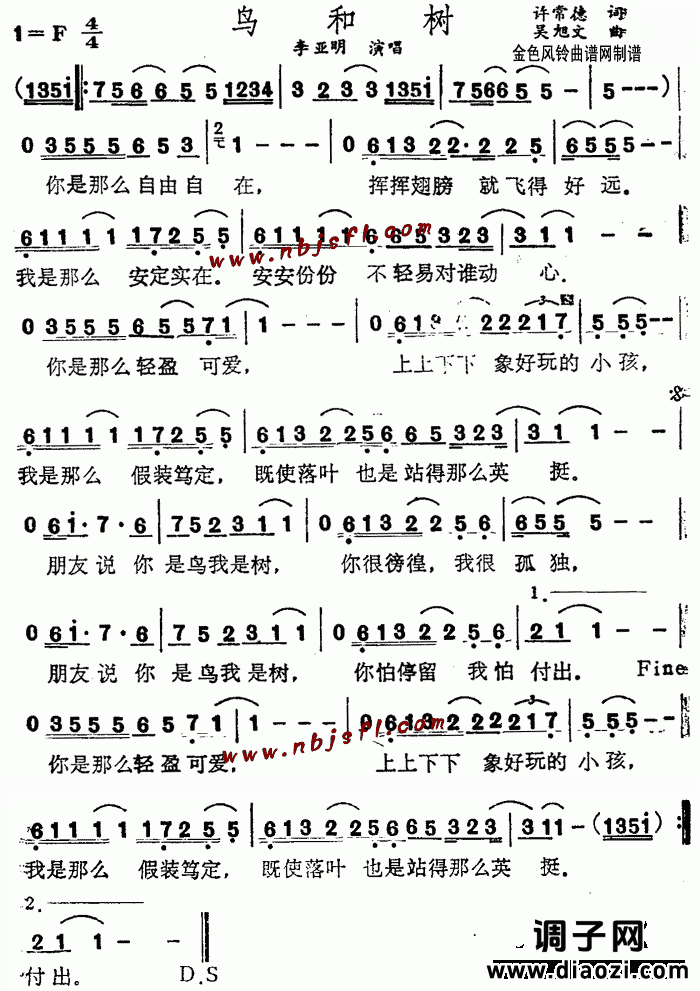 1=F 4/4 鸟 和 树 许常德 词
吴旭文 曲
李亚明 演唱 金色风铃曲谱网制谱
(1351 :7566 5 5 1234 | 3 2 3 3 1351 | 75665 5 - | 5 - - - )
0 3555 5 6 5 3 | 1 - - - | 0 6132 2· 2 2 5 | 6555 5 - -
你是那么自由自 在, 挥挥翅膀 就飞得 好 远.
6111 1 1 172 5 5 | 6111 1 6 6 5 323 | 3 1 1 - -
www.nbjsfl.com
我是那么 安定实在. 安安份份 不轻易对谁动 心.
0 3555 5 6 5 5 7 1 | 1 - - - | 0 61 2 2 2 2 1 7 | 5 55 5 - -
你是那么轻盈 可爱, 上上下下 象好玩的 小 孩,
6111 1 1 172 5 5 | 6132 2 5 6 6 5 323 | 3 1 1 - -
我是那么 假装笃定, 既使落叶 也是站得那么英 挺.
0 6 i· 7· 6 | 7 5 2 3 1 1 | 0 6132 2 2 5 6 | 655 5 - -
朋友 说 你 是鸟我是树, 你很徬徨, 我很 孤 独,
1.
0 6 i· 7· 6 | 7 5 2 3 1 1 | 0 6132 2 2 5 6 | 2 1 1 - -
朋友 说 你 是鸟我是树, 你怕停留 我怕 付出. Fine
0 3555 5 6 5 7 1 | 1 - - - | 0 613 2 2 2 2 2 1 7 | 5 5 5 5 - -
www.nbjsfl.com
你是那么轻盈可爱, 上上下下 象好玩的 小 孩,
6111 1 1 172 5 5 | 6132 2 5 6 6 5 323 | 3 1 1 - (1351 :
我是那么 假装笃定, 既使落叶 也是站得那么英 挺.
2.
2 1 1 - -
付出. D.S
调子网
www.diaozi.com